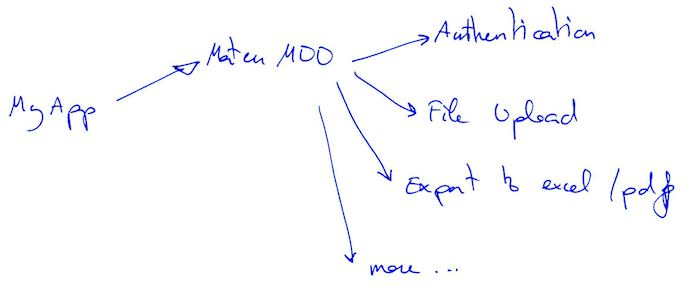 My App
Maten MOO
Authentication
File Upload
Export to excel / pdf
more ...